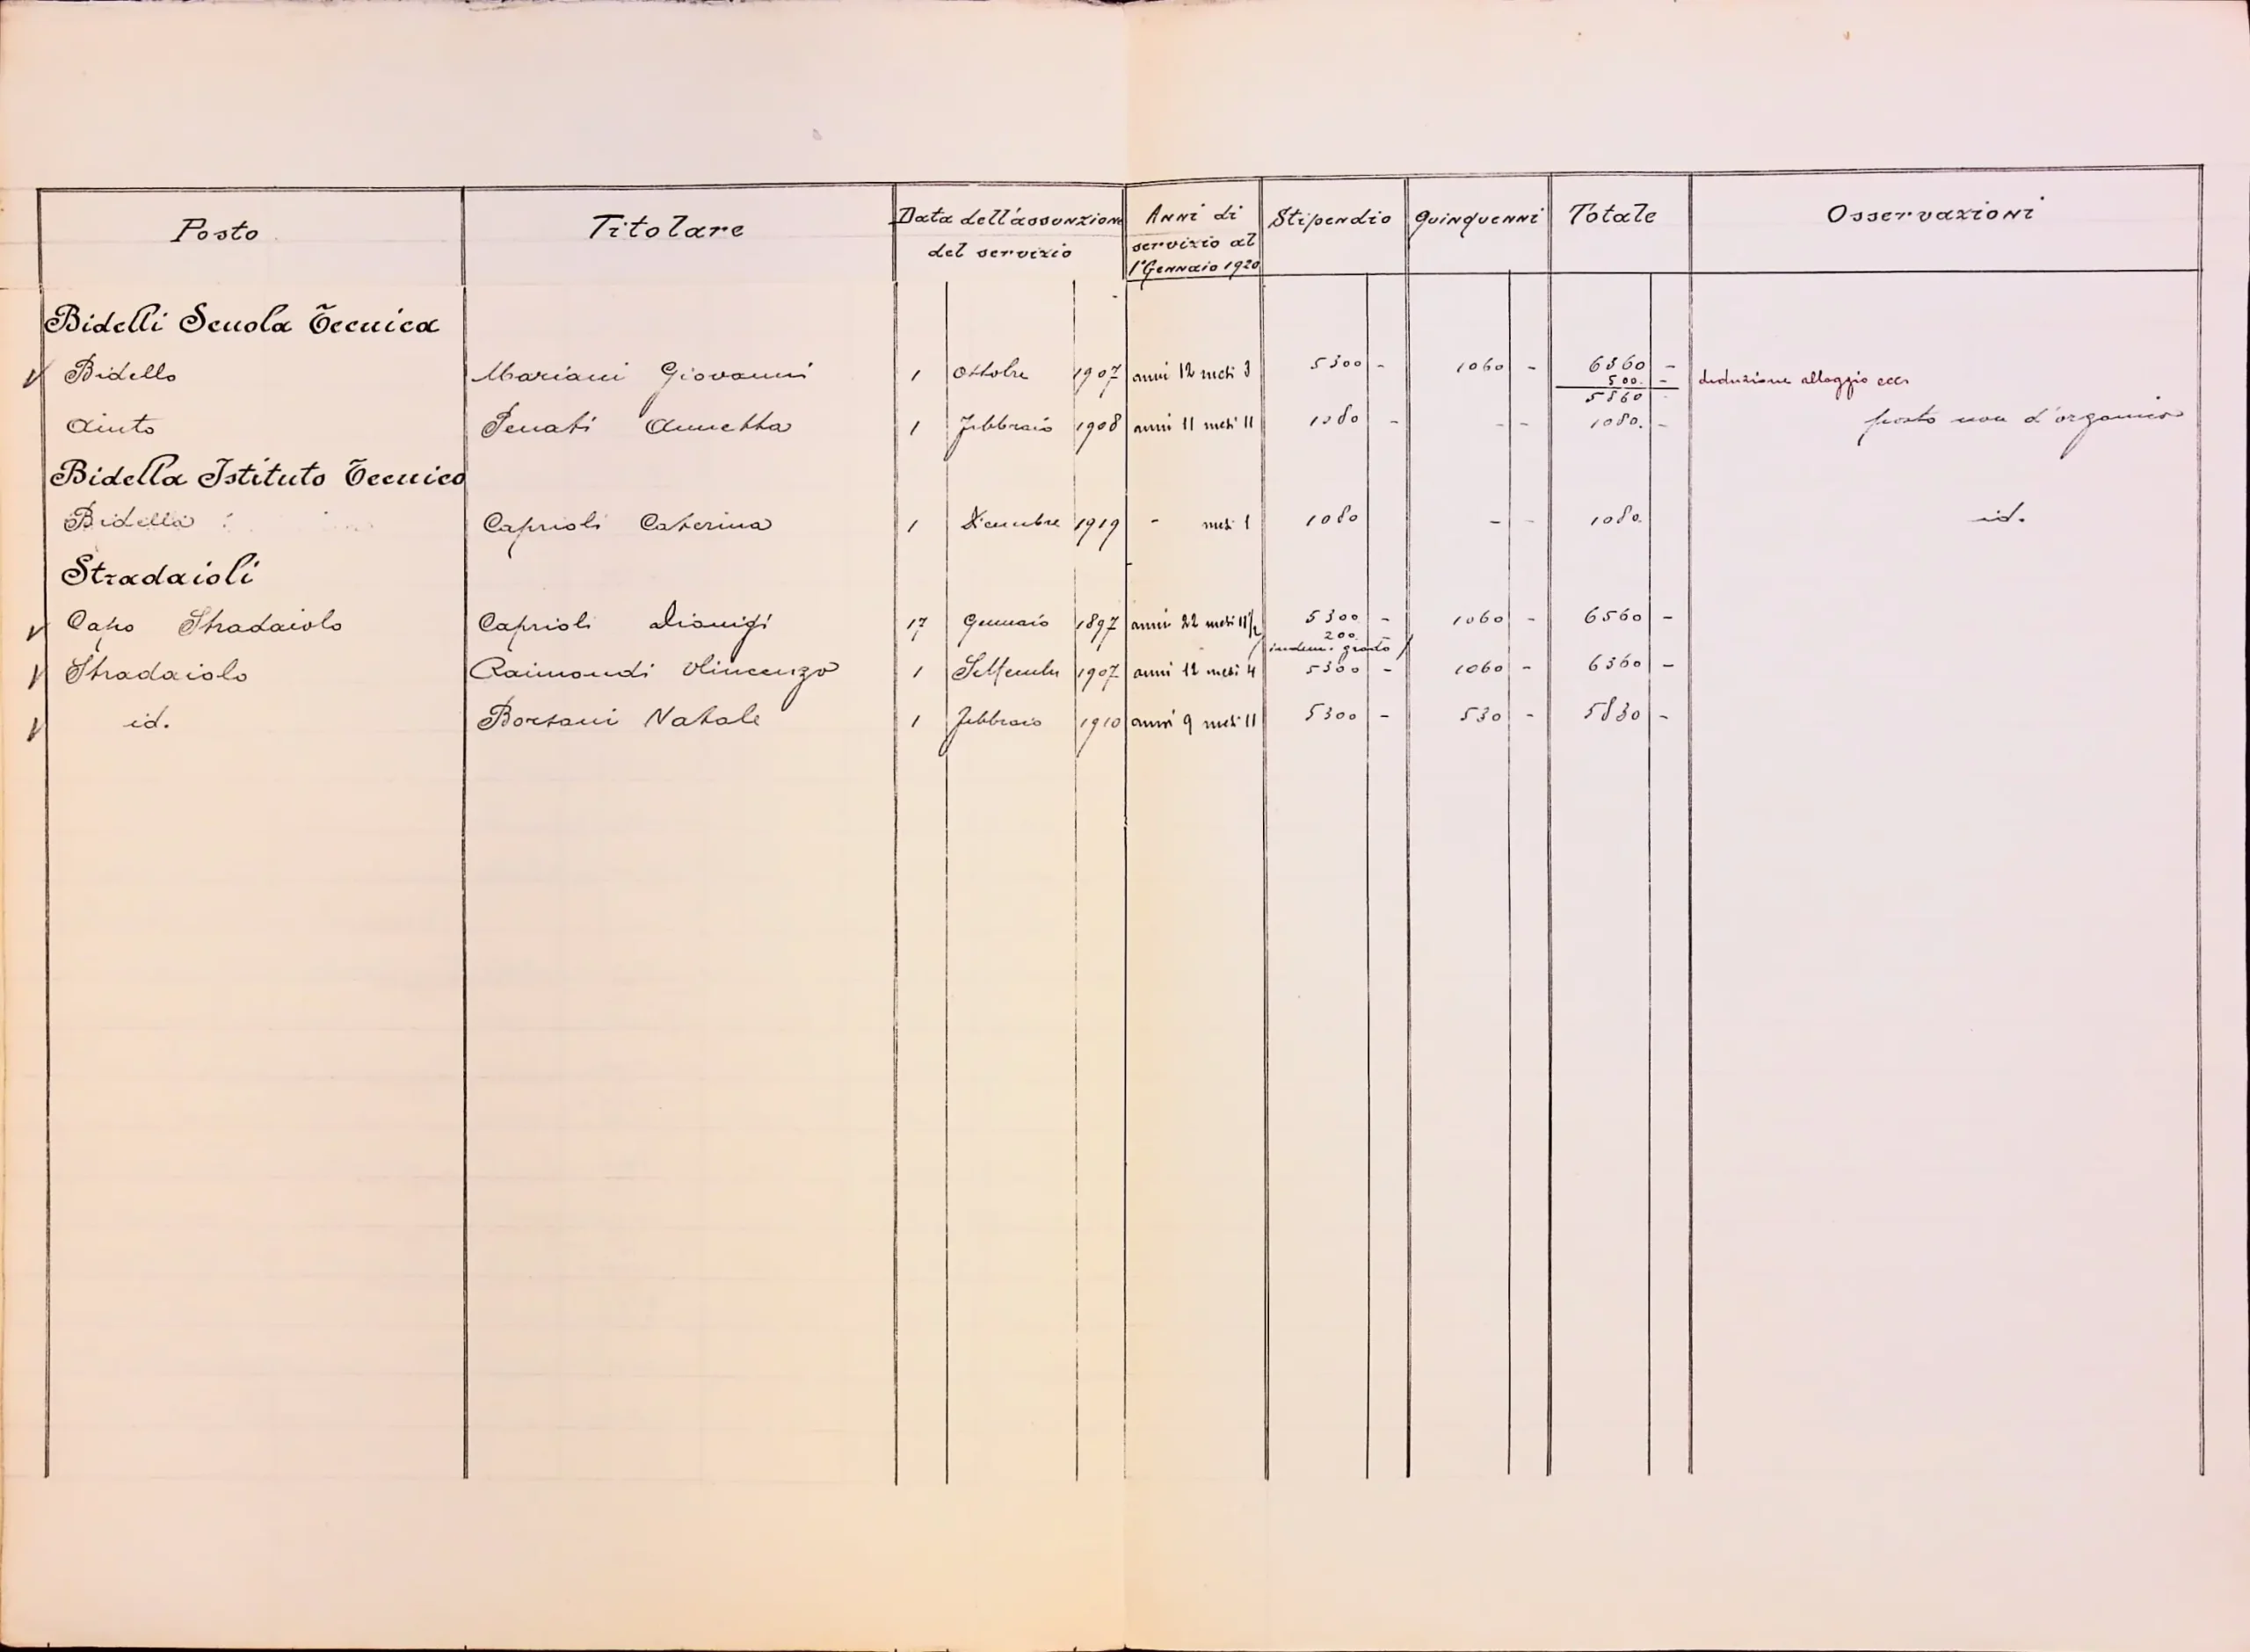 Posto Titolare Data dell'assunzione del servizio Anni di servizio al 1° Gennaio 1920 Stipendio Quinquenni Totale Osservazioni
Bidelli Scuola Tecnica
√ Bidello Mariani Giovanni 1 Ottobre 1907 anni 12 mesi 3 5300 - 1060 - 6360 -
500. - deduzione alloggio ecc.
5860 -
Aiuto Penati Annetta 1 Febbraio 1908 anni 11 mesi 11 1080 - - - 1080. - posto non d'organico
Bidella Istituto Tecnico
Bidella Caprioli Caterina 1 Dicembre 1919 - mesi 1 1080 - - 1080. id.
Stradaioli
√ Capo Stradaiolo Caprioli Dionigi 17 Gennaio 1897 anni 22 mesi 11 1/2 5300 - 1060 - 6560 -
200. -
(indenn. grado)
√ Stradaiolo Raimondi Vincenzo 1 Settembre 1907 anni 12 mesi 4 5300 - 1060 - 6360 -
√ id. Borsani Natale 1 Febbraio 1910 anni 9 mesi 11 5300 - 530 - 5830 -